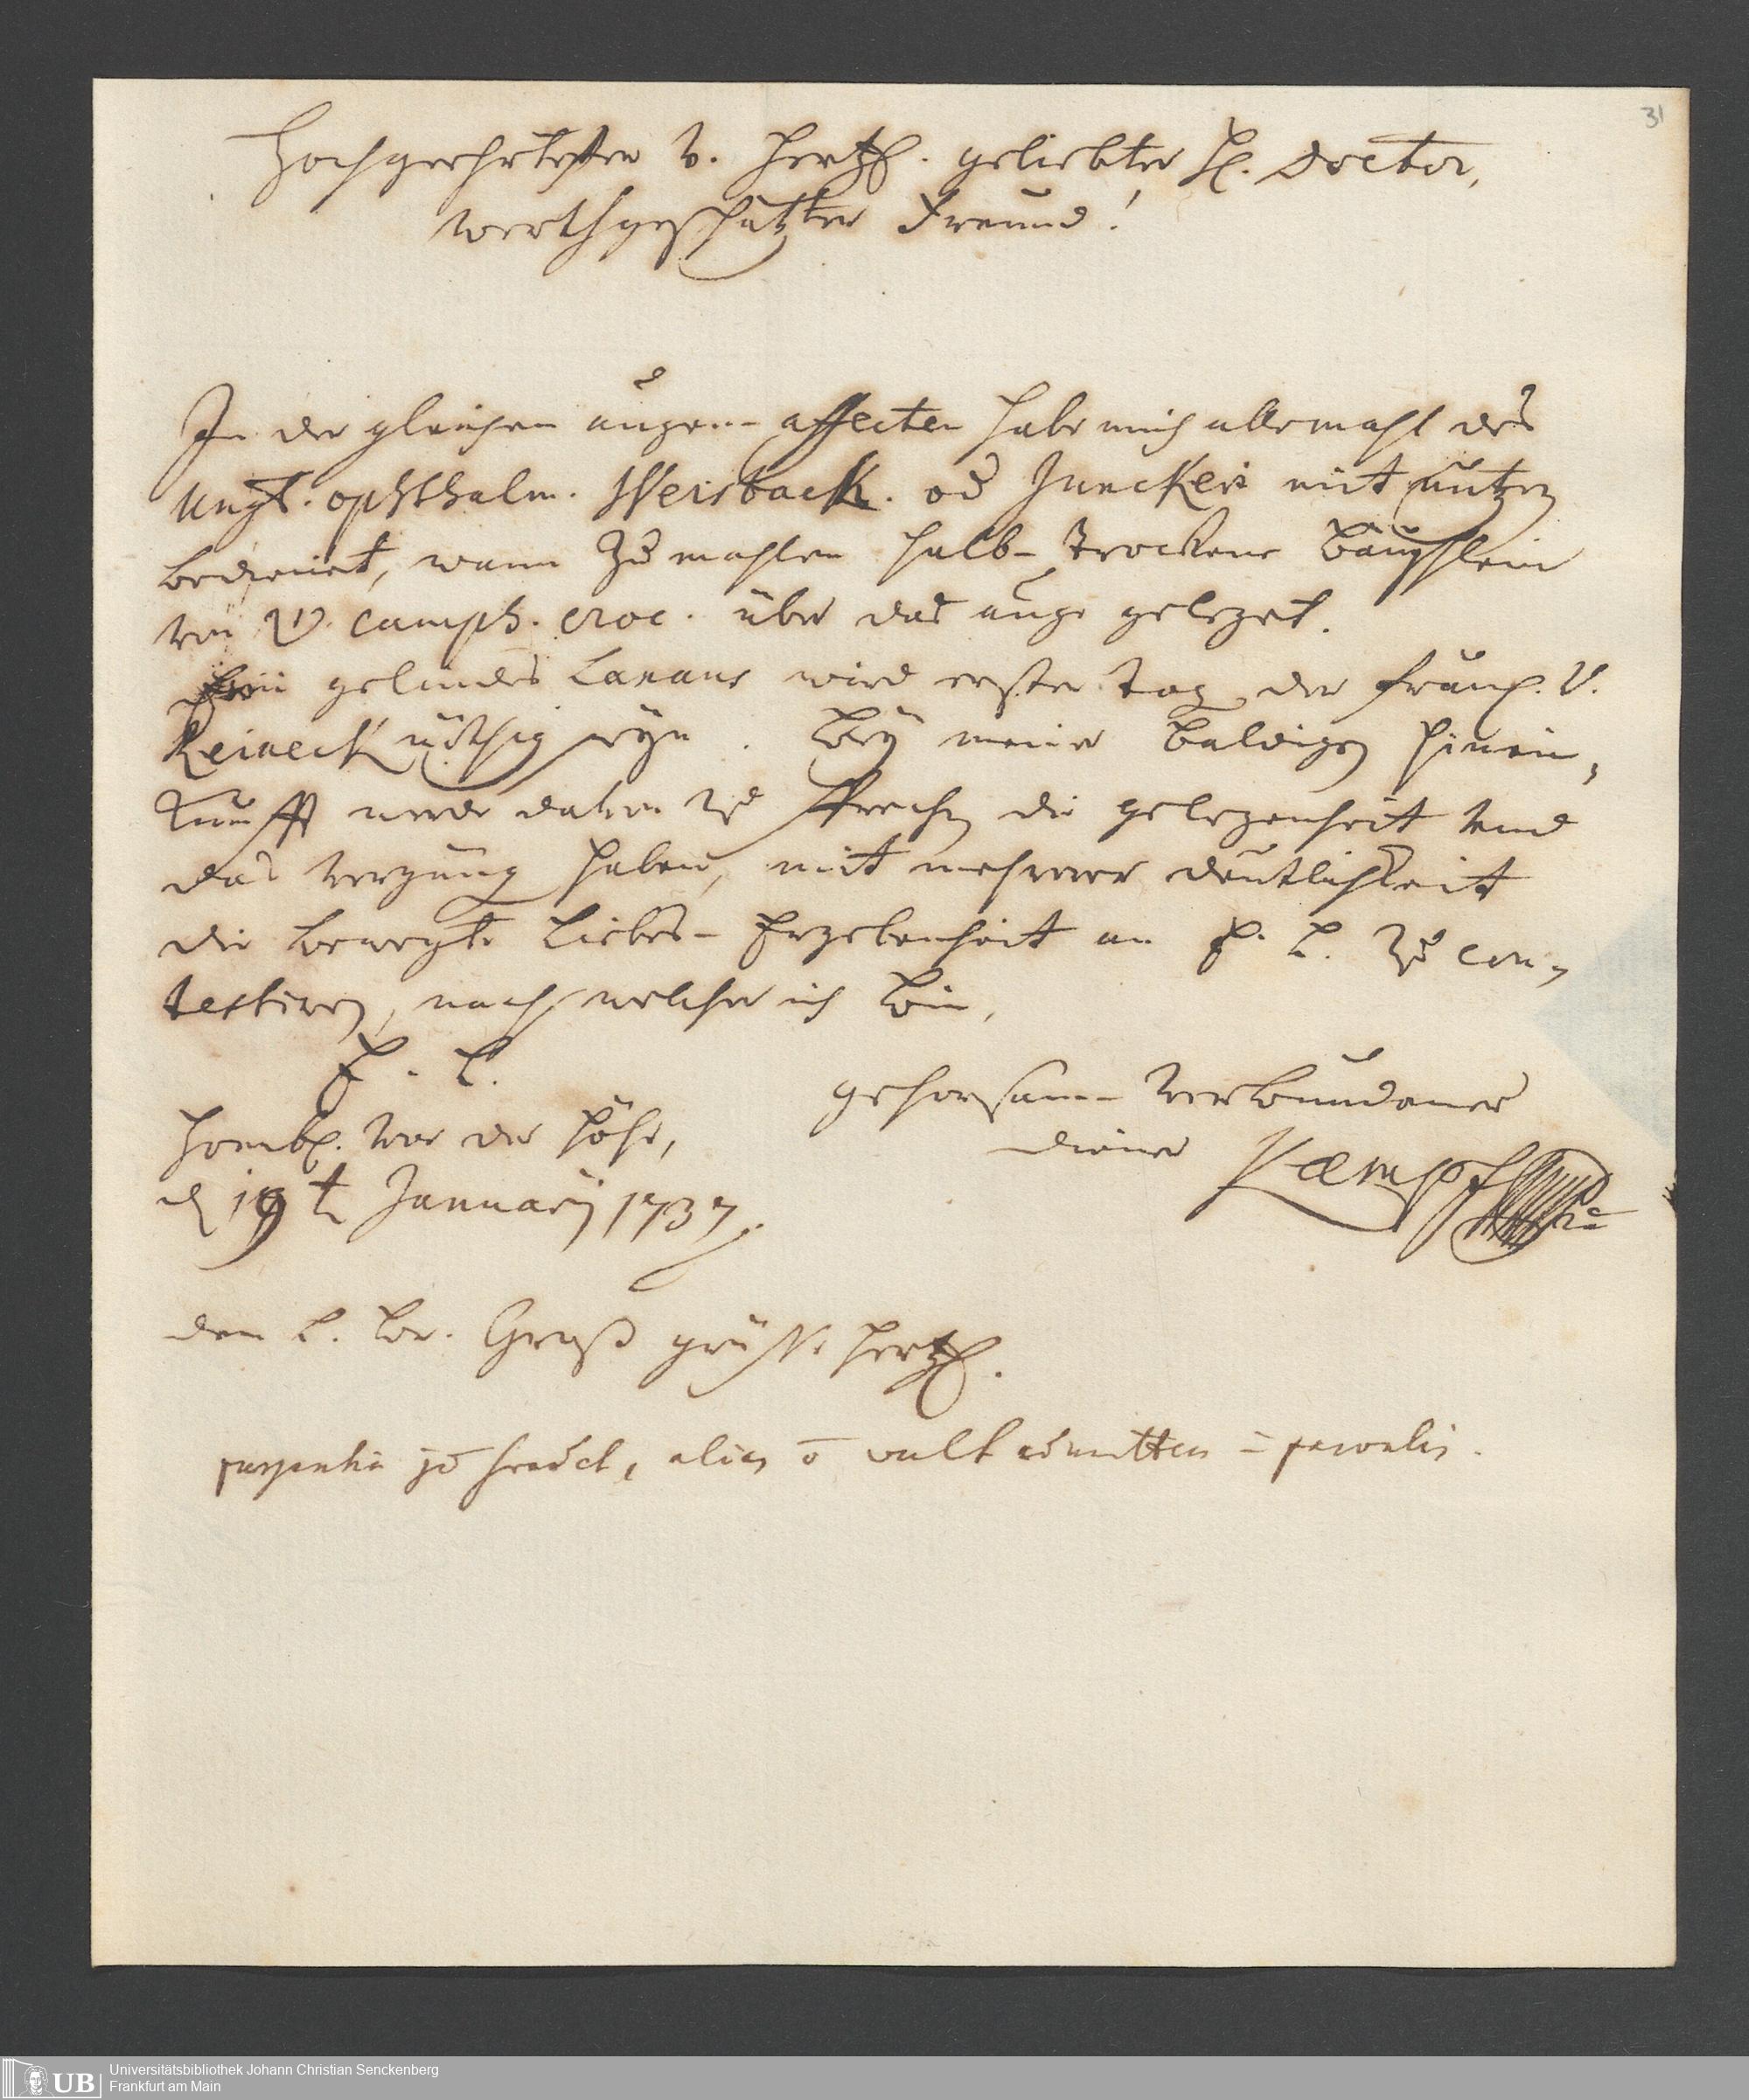 31
Hochgeehrtester v. hertzl. geliebter H. Doctor,
werthgeschätzter Freund!
In der gleichen augen- affecten habe mich allemahl des
Ungt. ophthalm. Weisbach. od Junckeri mit nutzen
bedienet, wann zu mahlen halb- trockene Bäuschlein
von camph. croc. über das auge geleget.
Ein gelindes Laxans wird erster tag der Frau
Reineck nöthig seyn. Bey meiner baldigen hinein,
kunfft werde davon zu sprechen die gelegenheit und
das vergnüg haben, mit mehrerer deutlichkeit
die bewegte Liebes- Ergebenheit an E. L. zu con,
testiren, nach welcher ich bin,
E. L.
gehorsam- verbundener
Homb. vor der Höhe,
diener Kaempf
d 19t January 1737.
dem L. br. Groß grüsse hertzl.
purgantia alias vult admittere
Universitätsbibliothek Johann Christian Senckenberg
Frankfurt am Main
UB